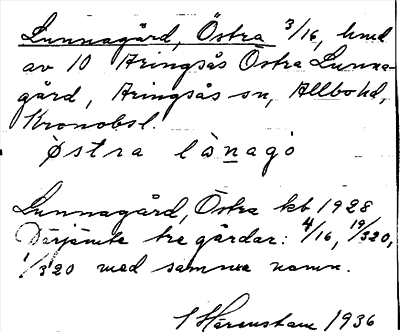 Lunnagård, Östra 3/16, hmd
av 10 Aringsås Östra Lunna-
gård, Aringsås sn, Allbo hd,
Kronobsl.
Östra lònagò
Lunnagård, Östra kb 1928
Därjämte tre gårdar: 4/16, 19/320,
1/320 med samma namn.
1936